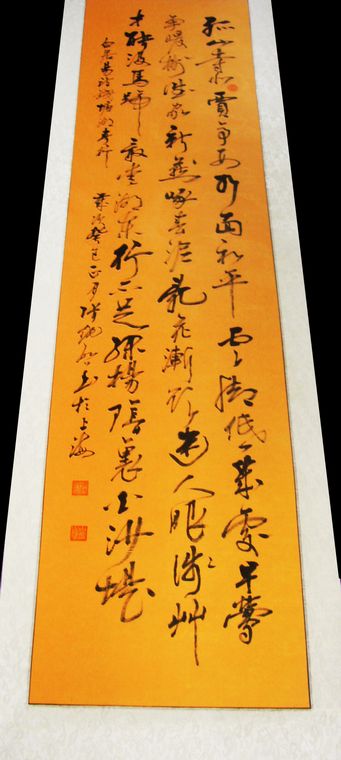 孤山寺北賈亭西水面初平雲腳低幾處早鶯
爭暖樹誰家新燕啄春泥亂花漸欲迷人眼淺艸
才能沒馬蹄最愛湖東行不足綠楊陰裏白沙堤
白居易詩錢塘湖春行 歲次癸巳正月張書於上海